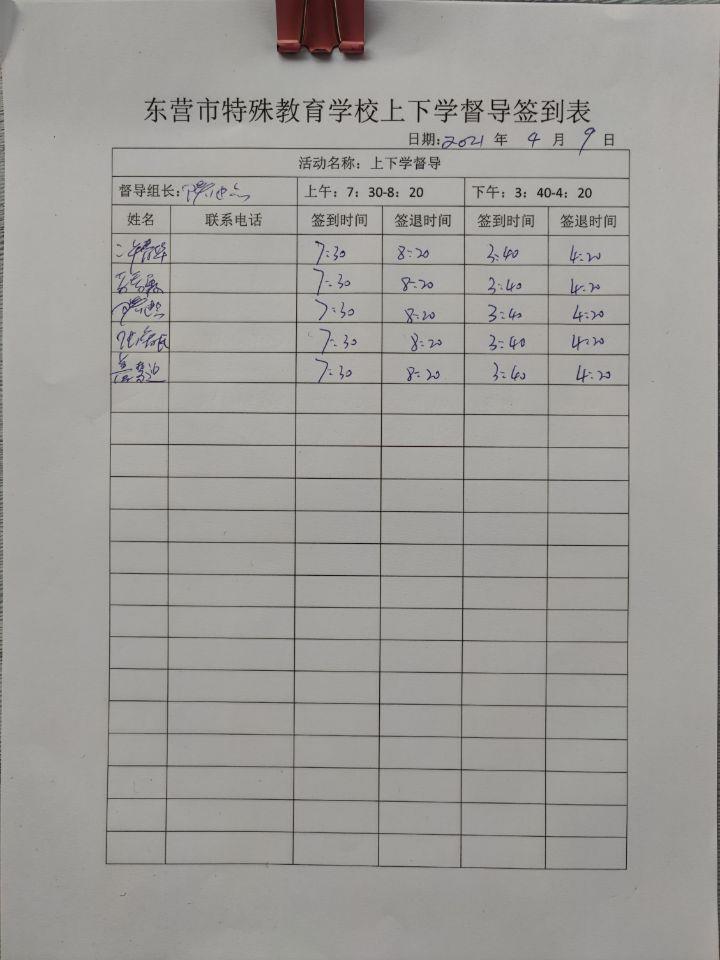 东营市特殊教育学校上下学督导签到表
日期:2021 年 4 月 9 日
活动名称：上下学督导
督导组长: 上午：7：30-8：20 下午：3：40-4：20
姓名 联系电话 签到时间 签退时间 签到时间 签退时间
7:30 8:20 3:40 4:20
7:30 8:20 3:40 4:20
7:30 8:20 3:40 4:20
7:30 8:20 3:40 4:20
7:30 8:20 3:40 4:20